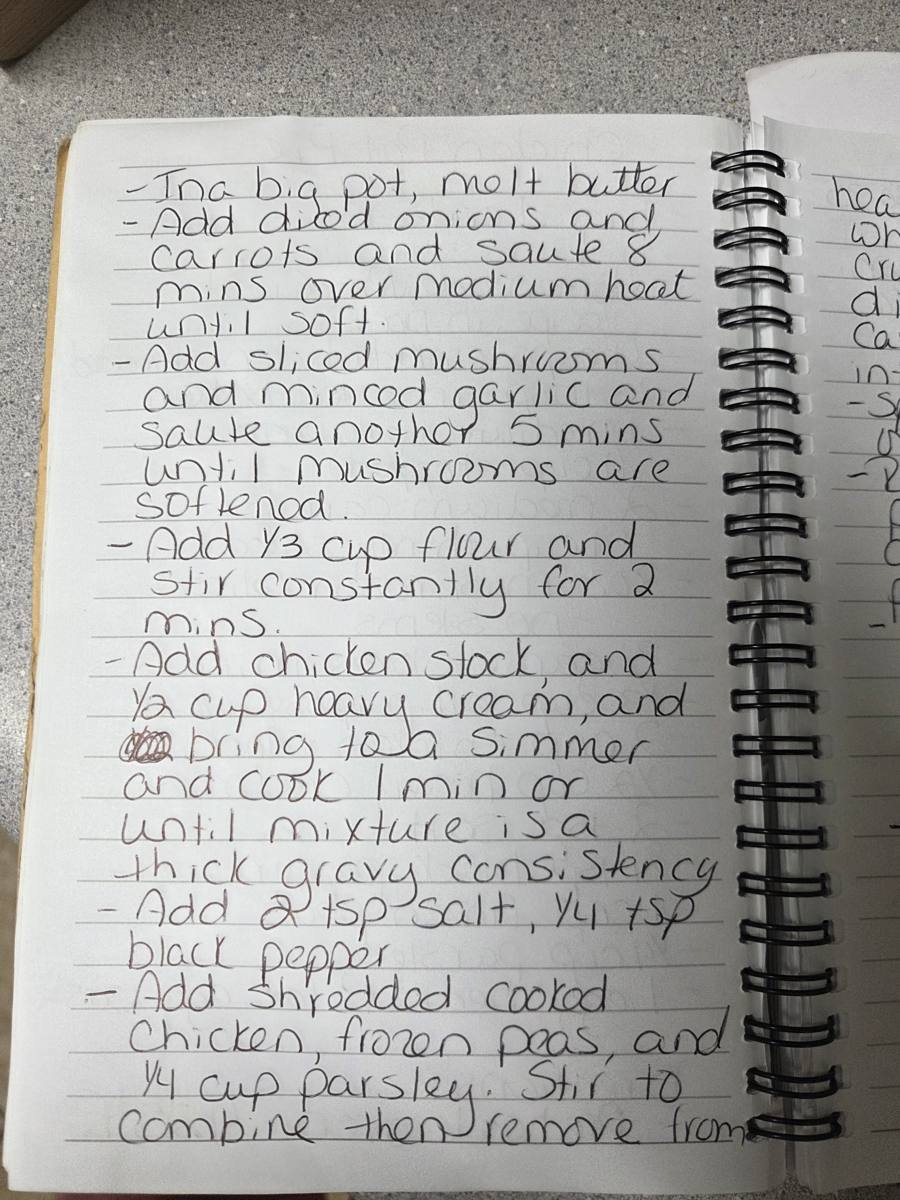 - In a big pot, melt butter
- Add diced onions and
carrots and saute 8
mins over medium heat
until soft.
- Add sliced mushrooms
and minced garlic and
saute another 5 mins
until mushrooms are
softened.
- Add 1/3 cup flour and
stir constantly for 2
mins.
- Add chicken stock, and
1/2 cup heavy cream, and
bring to a simmer
and cook 1 min or
until mixture is a
thick gravy consistency
- Add 2 tsp salt, 1/4 tsp
black pepper
- Add shredded cooked
chicken, frozen peas, and
1/4 cup parsley. Stir to
combine then remove from
hea
wh
cru
di
Ca
in-